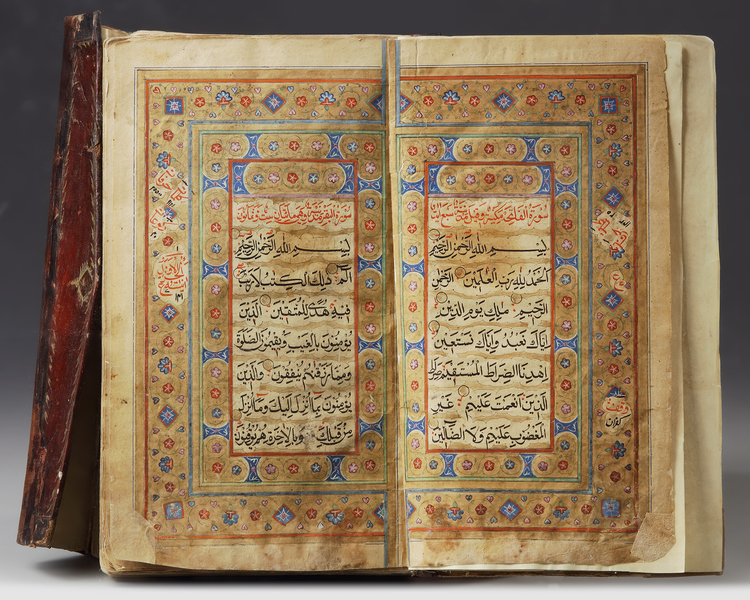 سورة الفاتحة مكية وقيل مدنية وهى سبع ايات
بسم الله الرحمن الرحيم
الحمد لله رب العلمين الرحمن
الرحيم ملك يوم الدين
اياك نعبد واياك نستعين
اهدنا الصراط المستقيم صراط
الذين انعمت عليهم غير
المغضوب عليهم ولا الضالين
سورة البقرة مدنية وهى مائتان وست وثمانون
بسم الله الرحمن الرحيم
الم ذلك الكتب لا ريب
فيه هدى للمتقين الذين
يؤمنون بالغيب ويقيمون الصلوة
ومما رزقنهم ينفقون والذين
يؤمنون بما انزل اليك وما انزل
من قبلك وبالاخرة هم يوقنون
وقف